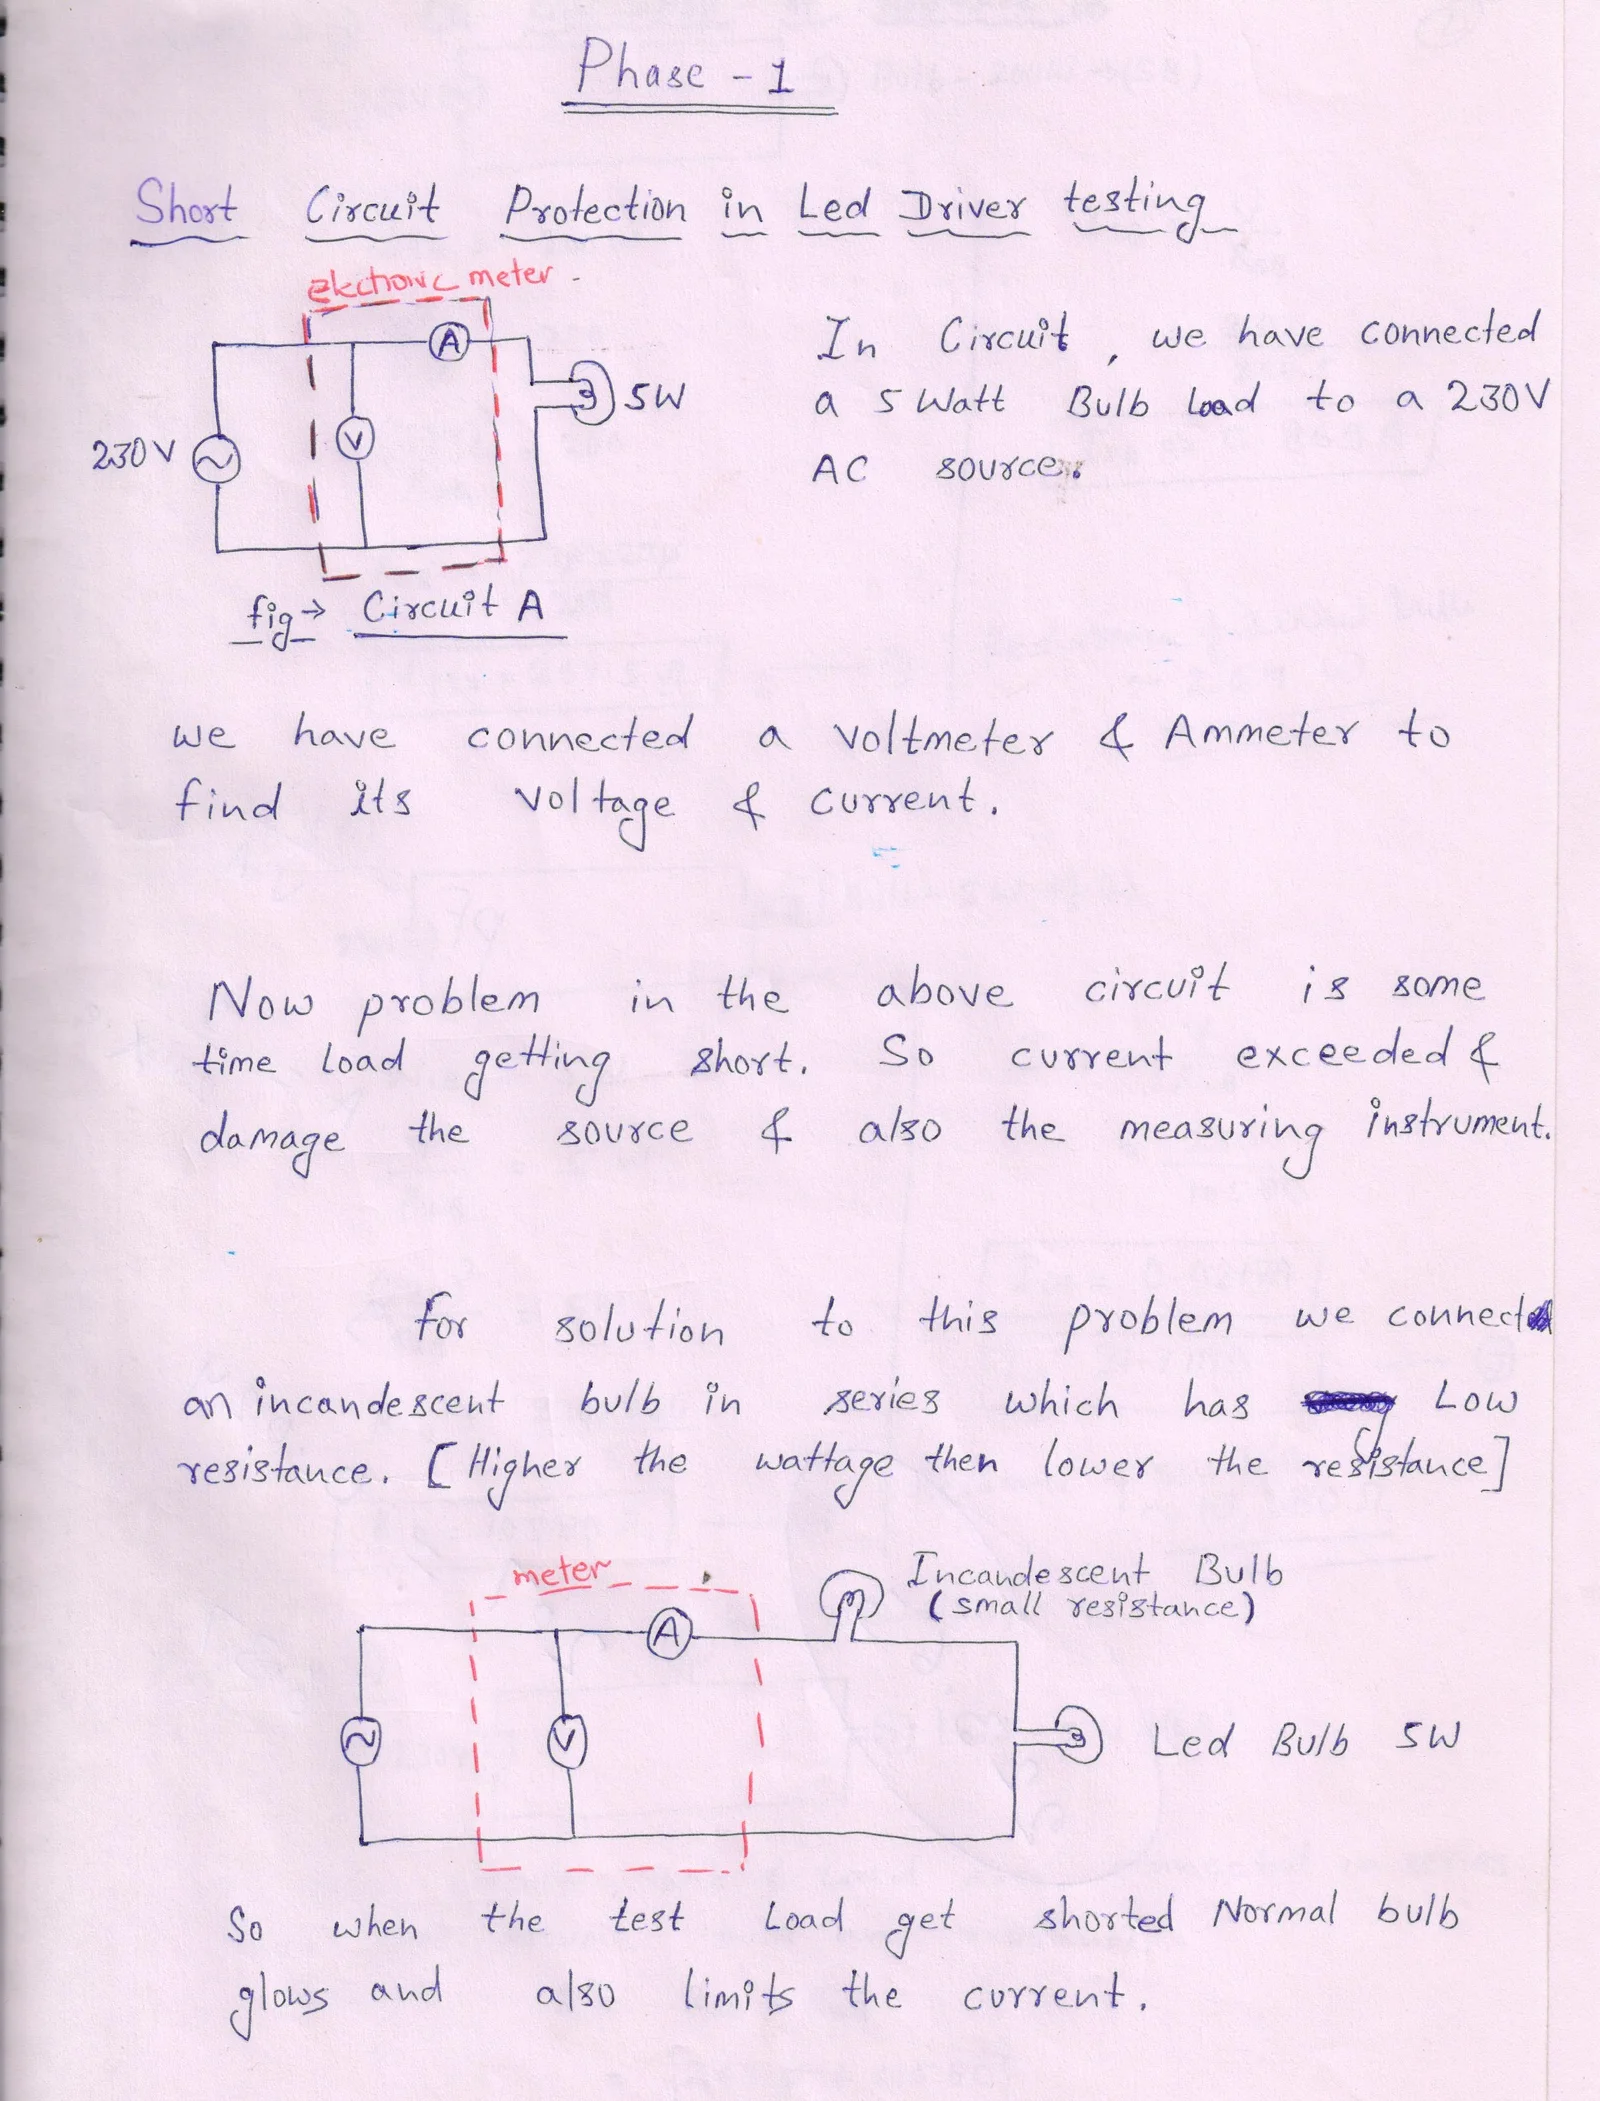 Phase - 1
Short Circuit Protection in Led Driver testing
electronic meter
A
V
230V
5W
In Circuit, we have connected
a 5 Watt Bulb load to a 230V
AC source.
fig → Circuit A
we have connected a voltmeter & Ammeter to
find its voltage & current.
Now problem in the above circuit is some
time load getting short. So current exceeded &
damage the source & also the measuring instrument.
for solution to this problem we connect
an incandescent bulb in series which has Low
resistance. [Higher the wattage then lower the resistance]
meter
Incandescent Bulb
(small resistance)
A
V
Led Bulb 5W
So when the test Load get shorted Normal bulb
glows and also limits the current.